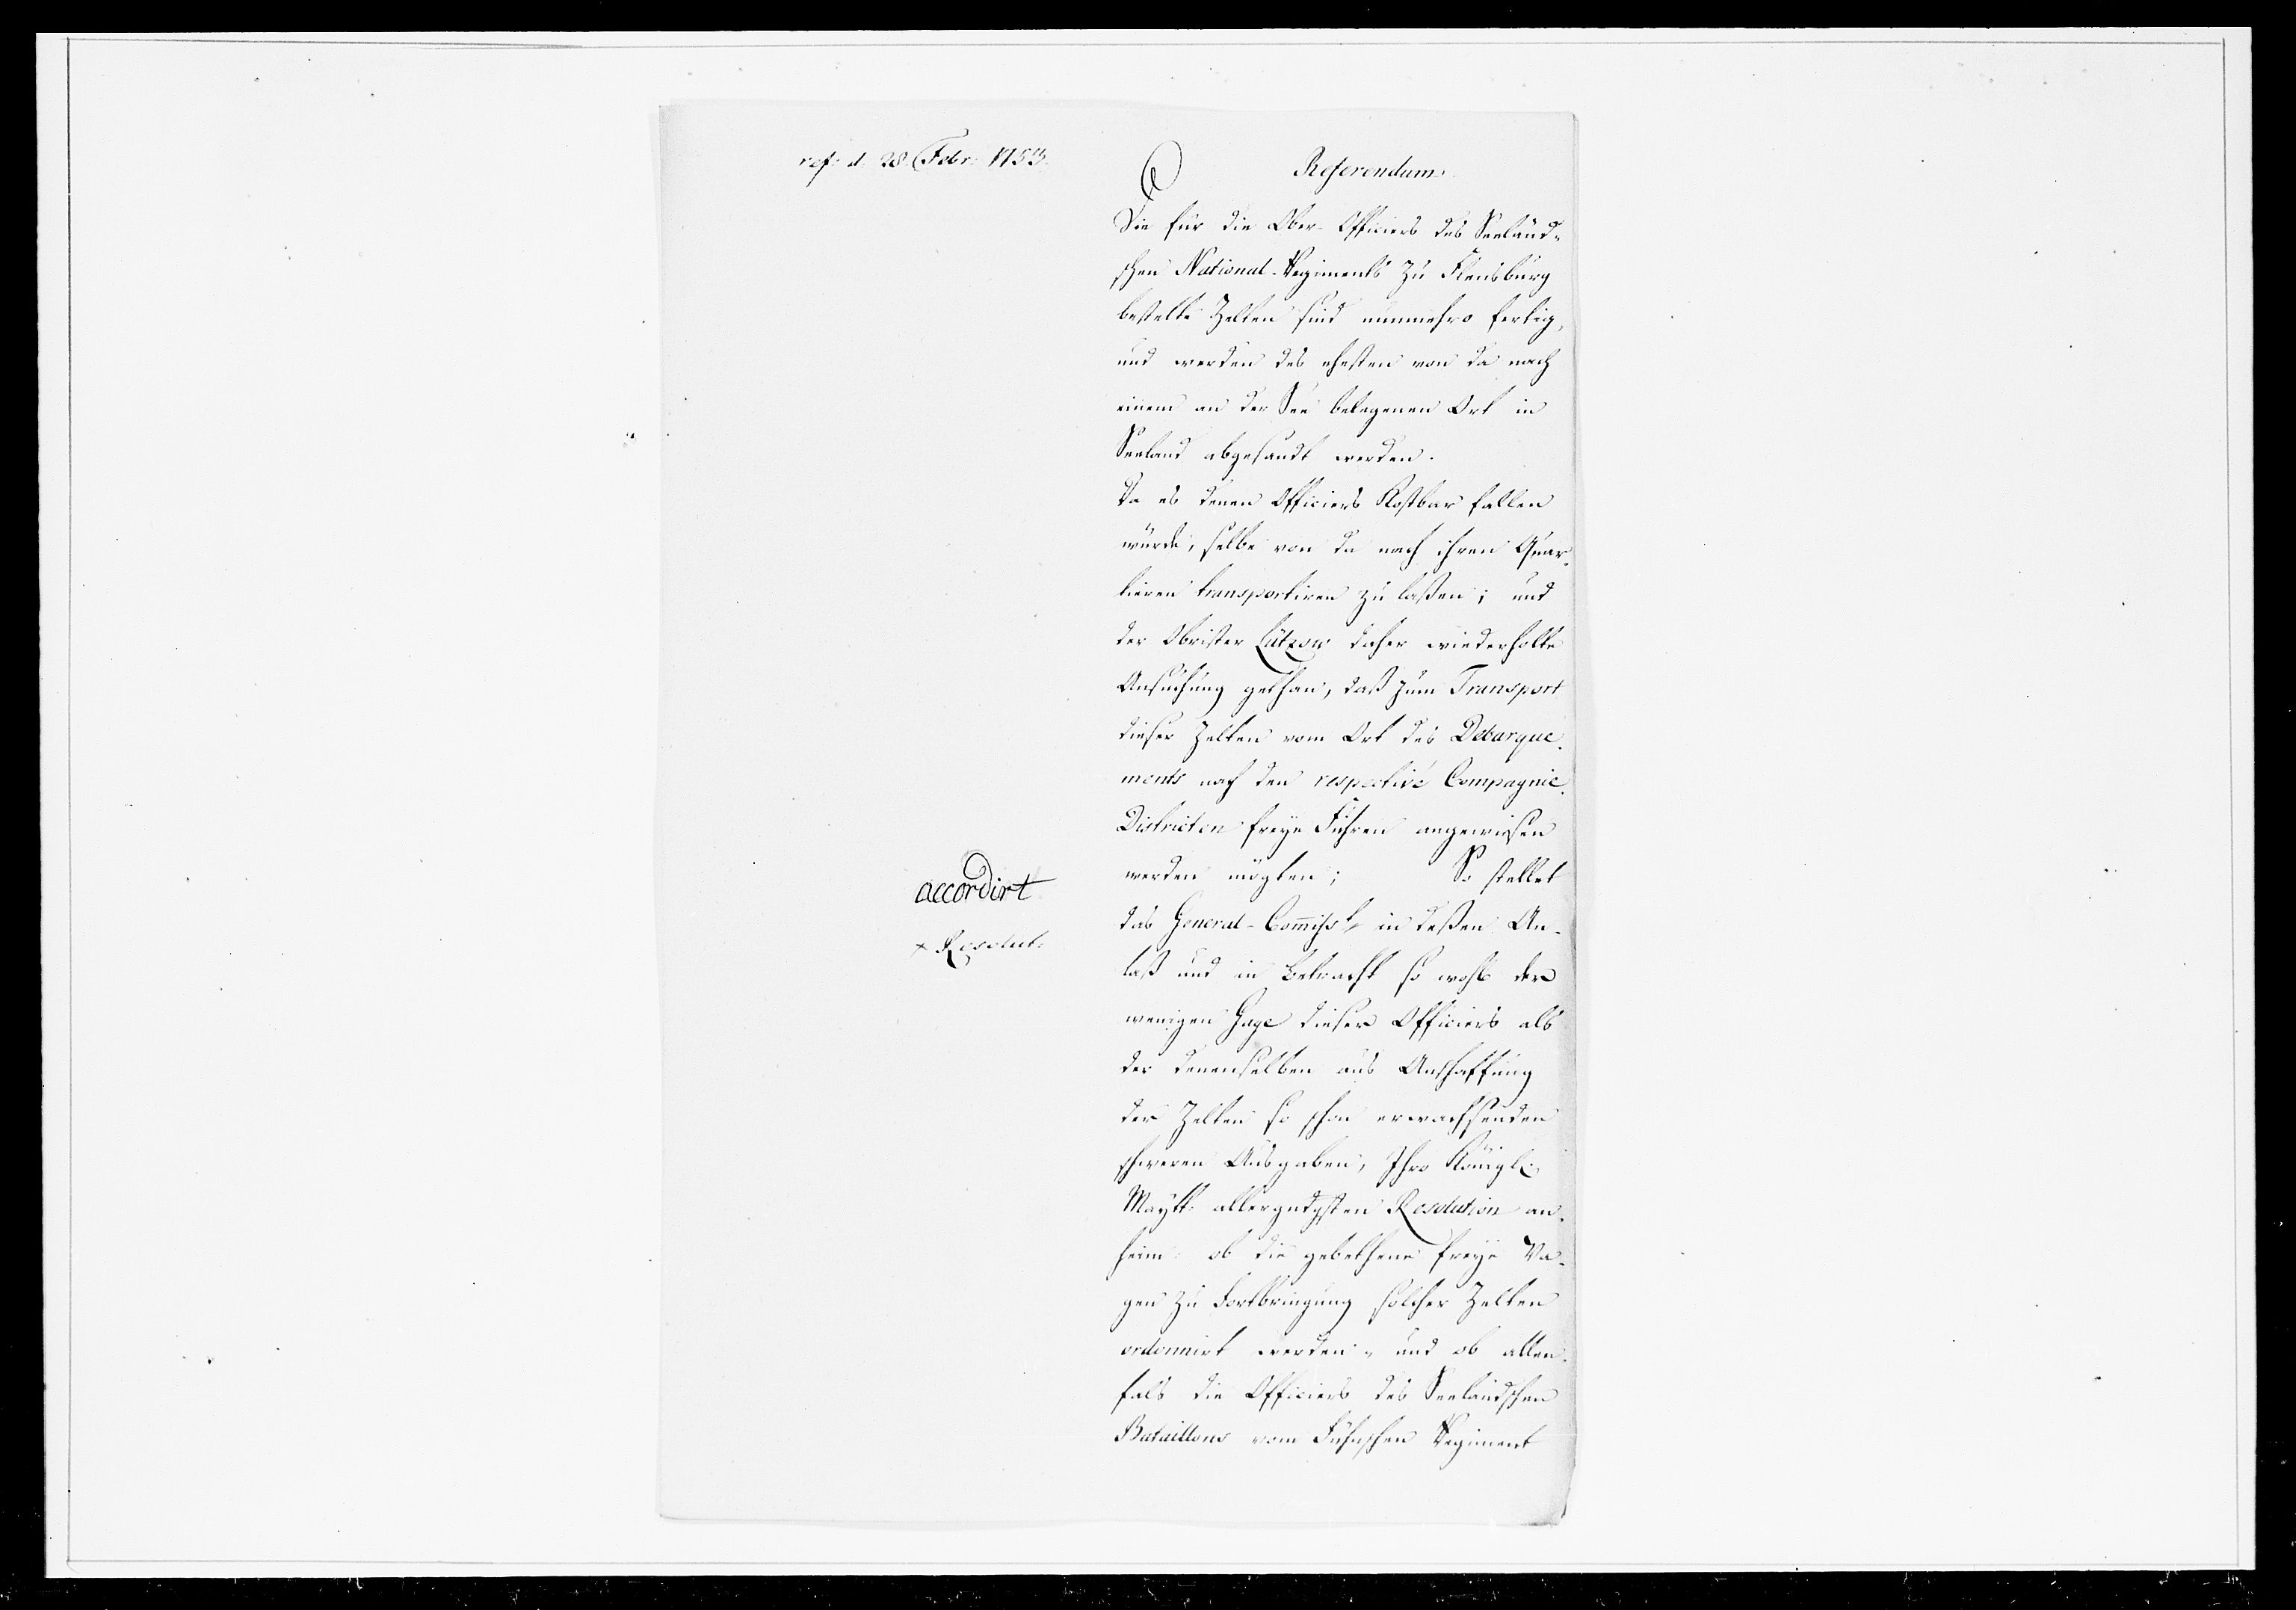 ref: d. 28. Febr: 1753.
Referendum.
Die für die Ober-Officiers des Seeländ=
schen National-Regiments zu Flensburg
bestelte Zelten sind nunmehro fertig,
und werden des ehesten von da nach
einem an der See belegenen Ort in
Seeland abgesandt werden.
Da es denen Officiers Kostbar fallen
würde, selbe von da nach ihren Quar=
tieren transportiren zu laßen; und
der Obrister Lützow daher wiederholte
Ansuchung gethan, daß zum Transport
dieser Zelten vom Ort des Debarque=
ments nach den respective Compagnie=
Districten freye Fuhren angewiesen
werden mögten; So stellet
das General-Com̄iss: in deßen An=
laß und in Betracht so wohl der
wenigen Gage dieser Officiers als
der denenselben aus Anschaffung
der Zelten so schon erwachsenden
schweren Ausgaben, Ihro Königl:
Maytt: allergndgsten Resolution an=
heim: ob die gebethene freye Wa=
gen zu Fortbringung solcher Zelten
ordonnirt werden, und ob allen=
fals die Officiers des Seeländschen
Bataillons vom Fühnschen Regiment
accordirt
+ Resolut: